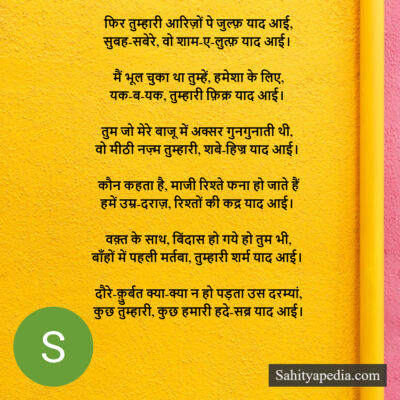 फिर तुम्हारी आरिज़ों पे जुल्फ़ याद आई,
सुबह-सबेरे, वो शाम-ए-लुत्फ़ याद आई।
मैं भूल चुका था तुम्हें, हमेशा के लिए,
यक-ब-यक, तुम्हारी फ़िक्र याद आई।
तुम जो मेरे बाजू में अक्सर गुनगुनाती थी,
वो मीठी नज़्म तुम्हारी, शबे-हिज्र याद आई।
कौन कहता है, माजी रिश्ते फना हो जाते हैं
हमें उम्र-दराज़, रिश्तों की कद्र याद आई।
वक़्त के साथ, बिंदास हो गये हो तुम भी,
बाँहों में पहली मर्तबा, तुम्हारी शर्म याद आई।
दौरे-क़ुर्बत क्या-क्या न हो पड़ता उस दरम्यां,
कुछ तुम्हारी, कुछ हमारी हदे-सब्र याद आई।
S
Sahityapedia.com